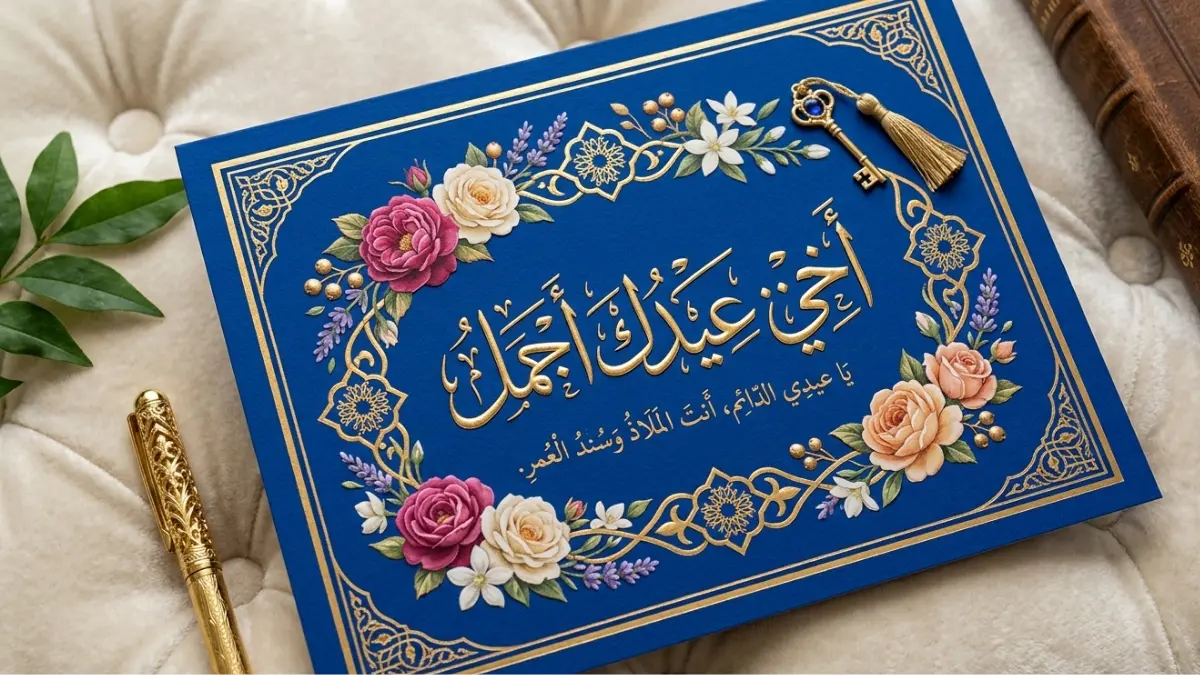 أَخِي عِيَدُكَ أَجْمَلُ
يَا عيدِي الدَّائِم، أَنتَ المَلَاذُ وَسُندُ الْعُمرِ.